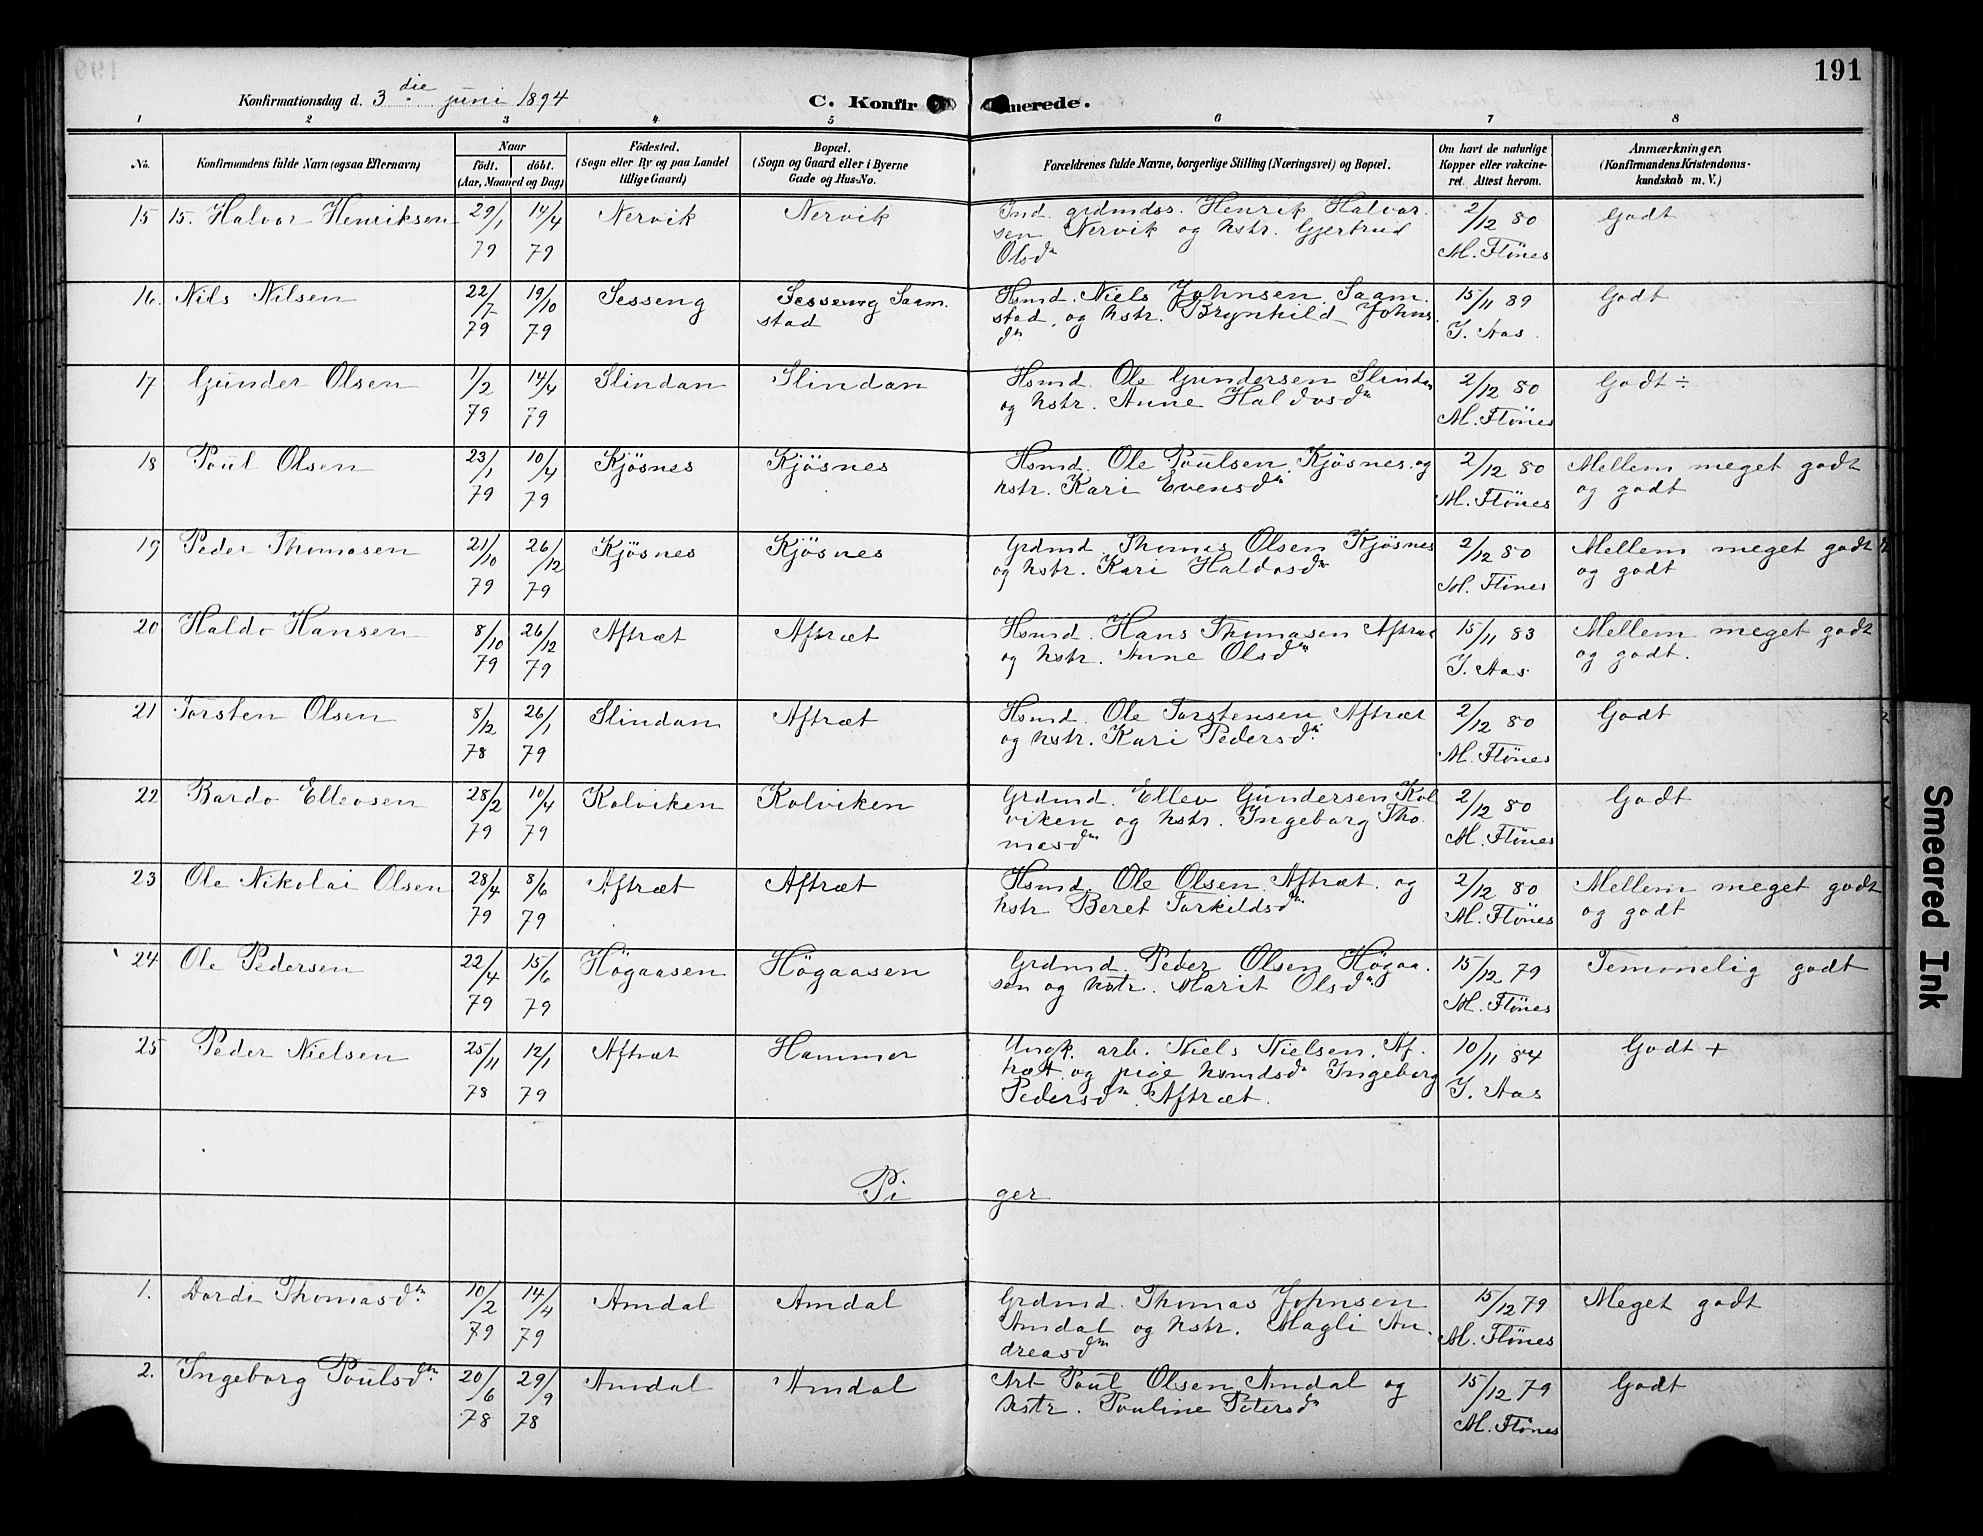 191
Konfirmationsdag d. 3 die juni 1894
C. Konfirmerede.
1 2 3 4 5 6 7 8
No. Konfirmandens fulde Navn (ogsaa Efternavn) Naar Födt. döbt. (Aar, Maaned og Dag) Födested. (Sogn eller By og paa Landet tillige Gaard) Bopæl. (Sogn og Gaard eller i Byerne Gade og Hus-No. Forældrenes fulde Navne, borgerlige Stilling (Næringsvei) og Bopæl. Om havt de naturlige Kopper eller vakcineret. Attest herom. Anmærkninger. (Konfirmandens Kristendomskundskab m. V.)
15 15. Halvor Henriksen 29/1 79 14/4 79 Nervik Nervik Ind. grdmdss. Henrik Halvor.
sen Nervik og hstr. Gjertrud
Olsdn 2/12 80 M. Flönes Godt
16. Nils Nilsen 22/7 79 19/10 79 Sesseng Sesseng Saam.
stad Hsmd. Niels Johnsen Saam.
stad, og hstr. Brynhild Johns.
dn 15/11 89 J. Aas. Godt
17 Gunder Olsen 1/2 79 14/4 79 Slindan Slindan Hsmd. Ole Gundersen Slindan
og hstr. Anne Haldosdn 2/12 80 M. Flönes Godt ÷
18 Poul Olsen 23/1 79 10/4 79 Kjösnes Kjösnes Hsmd. Ole Poulsen Kjösnes og
hstr. Kari Evensdn 2/12 80 M. Flönes Mellem meget godt
og godt
19 Peder Thomasen 21/10 79 26/12 79 Kjösnes Kjösnes Grdmd. Thomas Olsen Kjösnes
og hstr. Kari Haldosdn 2/12 80 M. Flönes Mellem meget godt
og godt
20 Haldo Hansen 8/10 79 26/12 79 Aftræt Aftræt Hsmd. Hans Thomasen Aftræt
og hstr. Anne Olsdn 15/11 83 J. Aas. Mellem meget godt
og godt.
21 Torsten Olsen 8/12 78 26/1 79 Slindan Aftræt Hsmd. Ole Torstensen Aftræt
og hstr. Kari Pedersdn 2/12 80 M. Flönes Godt
22 Bardo Ellevsen 28/2 79 10/4 79 Kolviken Kolviken Grdmd. Ellev Gundersen Kol
viken og hstr. Ingeborg Tho.
masdn 2/12 80 M. Flönes Godt
23 Ole Nikolai Olsen 28/4 79 8/6 79 Aftræt Aftræt Hsmd. Ole Olsen Aftræt. og
hstr Beret Torkildsdn 2/12 80 M. Flönes Mellem meget godt
og godt
24 Ole Pedersen 22/4 79 15/6 79 Högaasen Högaasen Grdmd. Peder Olsen Högaa.
sen og hstr. Marit Olsdn 15/12 79 M. Flönes Temmelig godt
25 Peder Nielsen 25/11 78 12/1 79 Aftræt Hammer Ungk. arb. Niels Nielsen Af.
træt og pige hsmdsdn Ingeborg
Pedersdn Aftræt. 10/11 84 J. Aas Godt +
Piger
1. Dordi Thomasdn 10/2 79 14/4 79 Amdal Amdal Grdmd. Thomas Johnsen
Amdal og hstr. Magli An.
dreasdn 15/12 79 M. Flönes Meget godt
2. Ingeborg Poulsdn 20/6 78 29/9 78 Amdal Amdal Arb Poul Olsen Amdal og
hstr. Pouline Petersdn 15/12 79 M. Flönes Godt
Smeared Ink